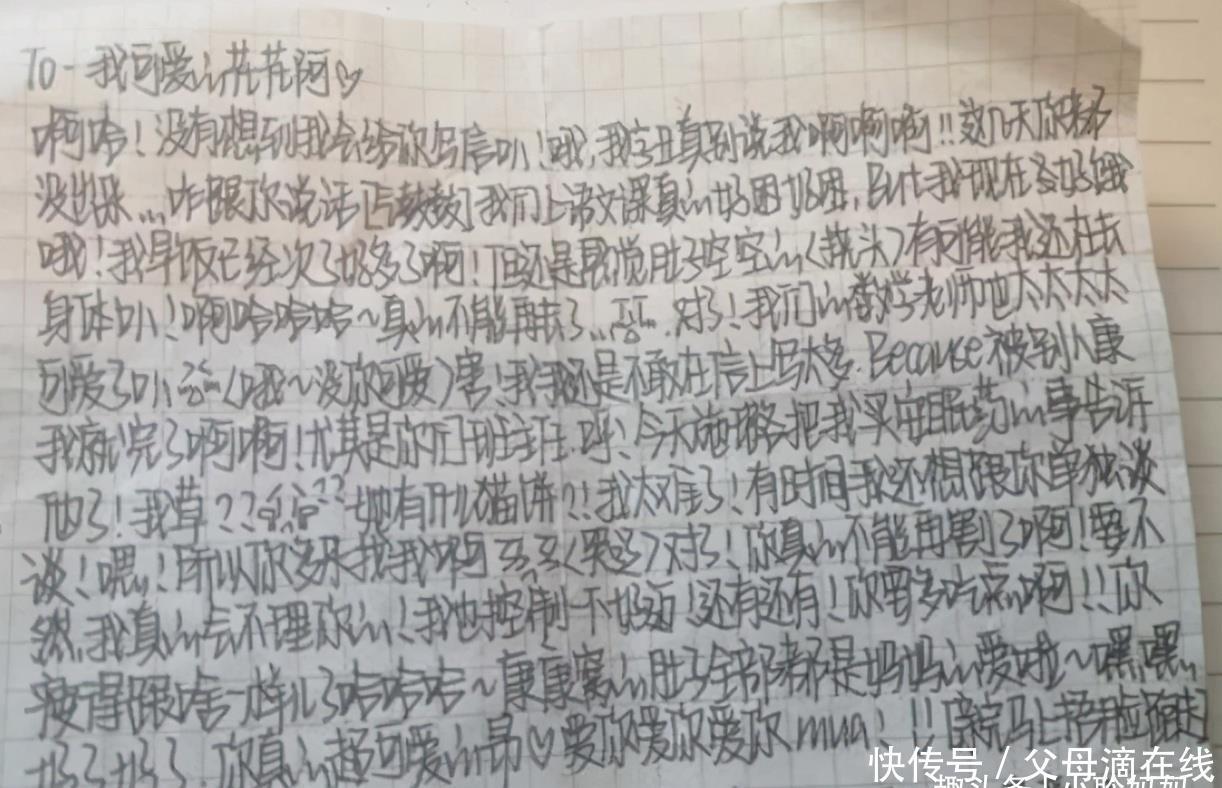 To-我可爱的花花阿♡
啊哈！没有想到我会给你写信叭！哦，我字丑真别说我啊啊啊!!这几天你都
没出来...咋跟你说话[气鼓鼓]我们上语文课真的好困好困，But我现在好饿
哦！我早饭已经次了好多了啊！但还是感觉肚子空空的(挠头)有可能我还在长
身体叭！啊哈哈哈~真的不能再长了...对了！我们的数学老师也太太太太
可爱了叭(哦~没你可爱)害！我还是不敢在信上写太多.Because被别人康
我就完了啊啊！尤其是你们班主任.呼！今天她把我买安眠药的事告诉
他了！我草??她有什么猫饼?!我太难了！有时间我还想跟你单独谈
谈！嘿！所以你多来找我啊(哭了)对了！你真的不能再割了啊！要不
然.我真的会不理你的！我也控制不好！还有还有！你要多吃点啊!!你
瘦得跟啥一样儿了哈哈哈~康康窝的肚子全部都是妈妈的爱啦~嘿嘿
好了好了.你真的超可爱的昂♡爱你爱你爱你mua!!!
快传号/父母滴在线